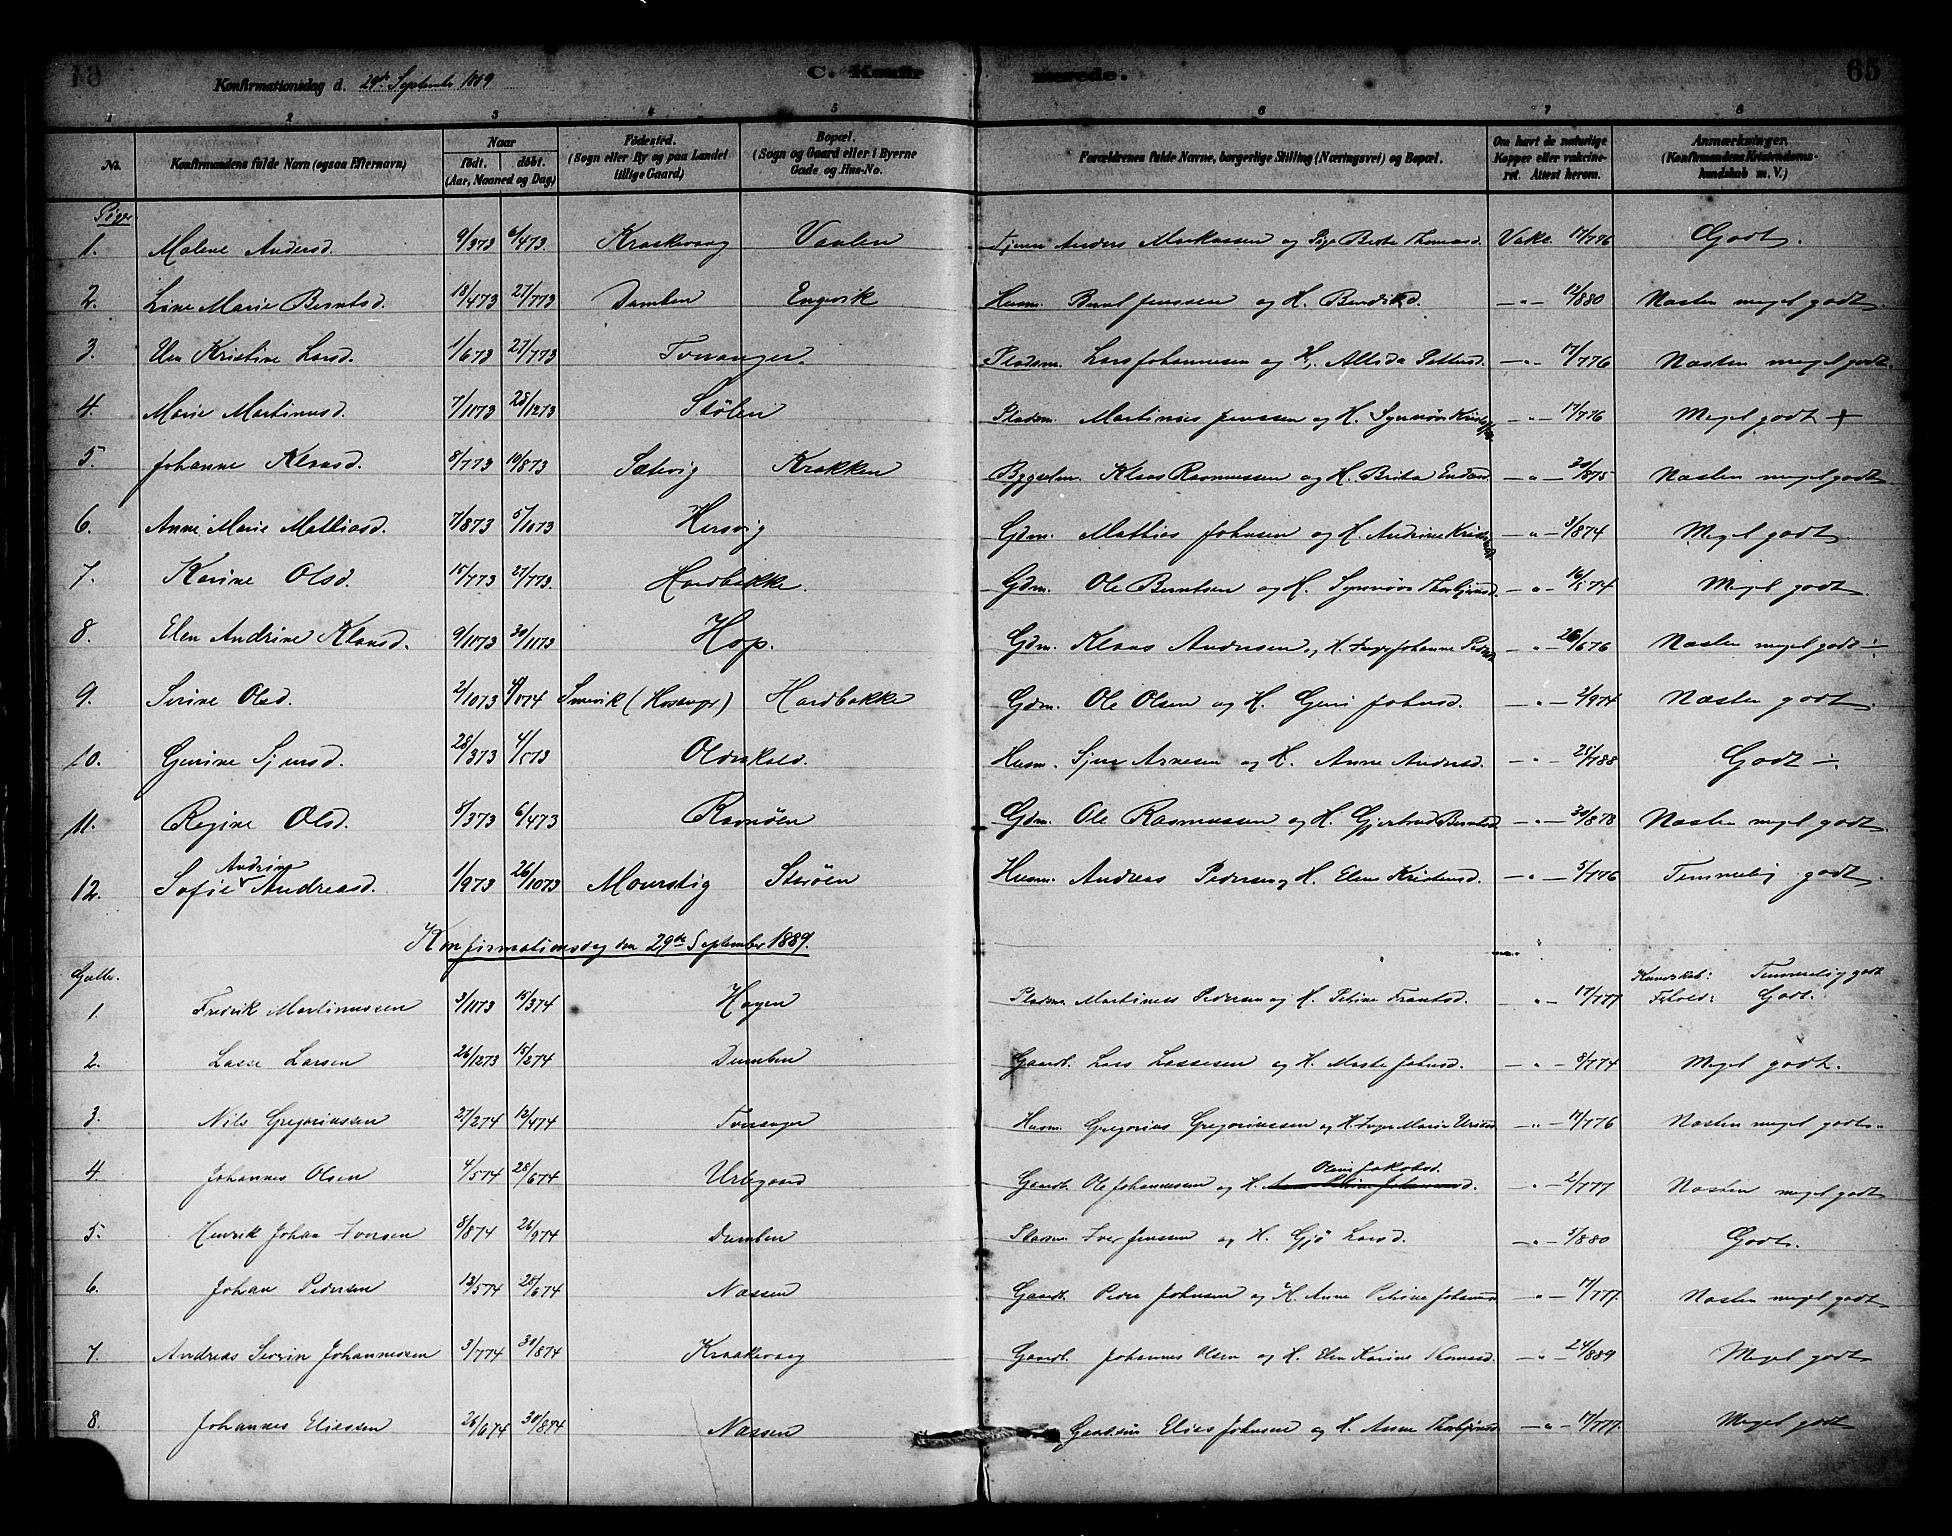 C. Konfirmerede.
65
Konfirmationsdag d. 29de September 1889
1 2 3 4 5 6 7 8
No. Konfirmandens fulde Navn (ogsaa Efternavn) Naar født. døbt. (Aar, Maaned og Dag) Fødested. (Sogn eller By og paa Landet tillige Gaard) Bopæl. (Sogn og Gaard eller i Byerne Gade og Hus-No. Forældrenes fulde Navne, borgerlige Stilling (Næringsvei) og Bopæl. Om havt de naturlige Kopper eller vakcineret. Attest herom. Anmærkninger. (Konfirmandens Kristendomskundskab m. V.)
Piger
1. Malene Andersd. 9/3 73 6/4 73 Kraakevaag Vaulen Anders Markussen og Pige Brita Thomasd. Vakc. 17/7 76 Godt.
2. Line Marie Berntsd. 18/4 73 27/7 73 Dumben Engevik Husm. Bernt Jenssen og H. Bendikd. — " — 12/8 80 Næsten meget godt.
3. Kristine Larsd. 1/6 73 27/7 73 Tveranger Pladsm. Lars Johannesen og H. Petters. — " — 17/7 76 Næsten meget godt.
4. Marie Martinusd. 7/10 73 28/12 73 Stølen Pladsm. Martinus Jenssen og H. Synnøve — " — 17/7 76 Meget godt +
5. Johanne Klausd. 8/7 73 10/8 73 Sætevig Krakken Bygselm. Klaus Rasmussen og H. Brita — " — 20/8 75 Næsten meget godt.
6. Anne Marie Mathiasd. 7/8 73 5/10 73 Hersvig Gdm. Mathias Johnsen og H. Andrine — " — 3/8 74 Meget godt.
7. Karine Olsd. 15/7 73 27/7 73. Hardbakke. Gdm. Ole Berntsen og H. Synnøve Thorbjørnsd. — " — 16/5 74 Meget godt.
8. Elen Andrine Klausd. 9/10 73 30/11 73 Hop. Gdm. Klaus Andersen og H. Inger Johanne — " — 26/6 76 Næsten meget godt ÷
9. Sirine Olsd. 2/10 73 74 (Hosanger) Hardbakke Gdm. Ole Olsen og H. Guri Johnsd. — " — 2/9 74 Næsten godt.
10. Gurine Sjursd. 28/3 73 4/5 73 Oldeskeld. Husm. Sjur Arnesen og H. Anne Andersd. — " — 25/7 88 Godt ÷.
11. Regine Olsd. 8/3 73 6/4 73 Ravnøen Gdm. Ole Rasmussen og H. Gjertrud Berntsd. — " — 30/8 78 Næsten meget godt.
Andrine
12. Sofie Andreasd. 1/9 73 26/10 73 Storøen Husm. Andreas Pedersen og H. Elen Kristensd. — " — 5/7 76 Temmelig godt.
Konfirmationsdag den 29de September 1889.
Gutter.
1. Fredrik Martinussen 3/10 73 15/3 74 Hagen Pladsm. Martinus Pedersen og H. Petrine Frantsd. " — 17/7 77 Kundskab: Temmelig godt
Forhold: Godt.
2. Lasse Larsen 26/12 73 15/2 74 Dumben Gaardb. Lars Lassesen og H. Marte Johnsd. — " — 8/7 74 Meget godt.
3. Nils Gregoriussen 27/2 74 12/4 74 Tveranger Husm. Gregorius Gregoriussen og H. Inger Marie — " — 17/7 76 Næsten meget godt.
Oline Jakobsd.
4. Johannes Olsen 4/5 74 28/6 74 Urtegaard Gaardb. Ole Johannessen og H. " — 2/7 77 Næsten meget godt
5. Henrik Johan Iversen 8/8 74 26/9 74 Dumben Pladsm. Iver Jenssen og H. Gjø Larsd. — " — 5/8 80 Godt.
6. Johan Pedersen 13/5 74 28/6 74 Nassen Gaardb. Peder Johnsen og H. Anne Petrine — " — 17/7 77. Næsten meget godt
7. Andreas Severin Johannessen 3/7 74 30/8 74 Kraakevaag Gaardb. Johannes Olsen og H. Elen Karine Thomasd. — " — 24/8 89 Meget godt
8. Johannes Eliessen 26/6 74 30/8 74 Nassen Elias Johnsen og H. Anne Thorbjørnsd. — " — 17/7 77. Meget godt